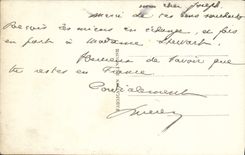 mon cher Joseph
merci de tes bons souhaits
Reçois les miens en échange, et fais
en part à Madame
Heureux de savoir que
tu restes en France
Cordialement